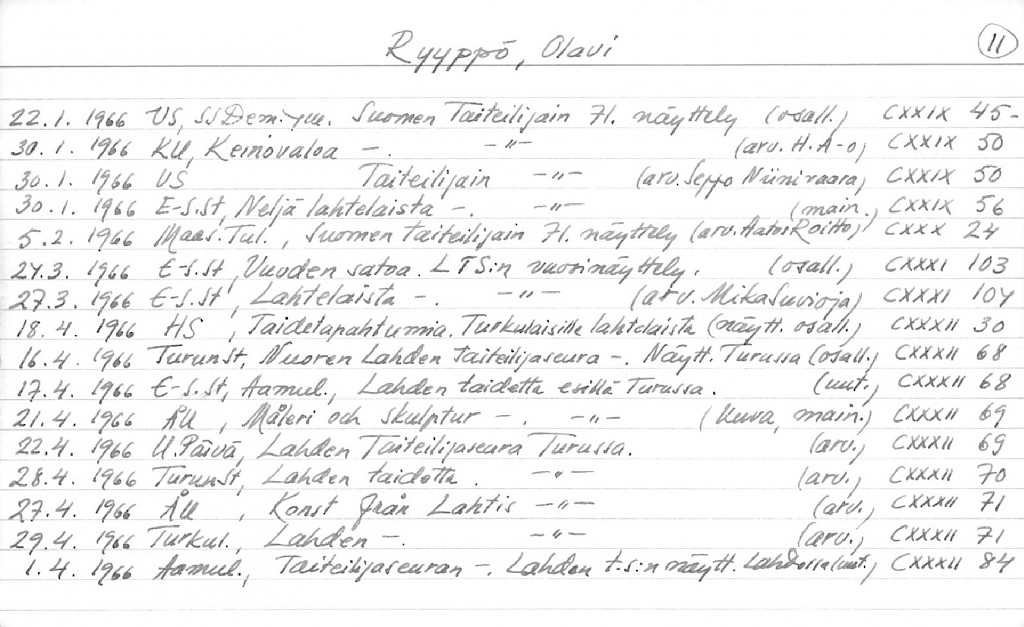 Ryyppö, Olavi
11
22.1. 1966 US, SS Dem. ym. Suomen Taiteilijain 71. näyttely (osall.) CXXIX 45-
30.1. 1966 KU, Keinovaloa -. -"- (arv. H. A-o) CXXIX 50
30.1. 1966 US Taiteilijain -"- (arv. Seppo Niinivaara) CXXIX 50
30.1. 1966 E-S.St, Neljä lahtelaista -. -"- (main.) CXXIX 56
5.2. 1966 Maas. Tul., Suomen taiteilijain 71. näyttely (arv. Aatos Roitto) CXXX 24
24.3. 1966 E-S.St, Vuoden satoa. LTS:n vuosinäyttely. (osall.) CXXXI 103
27.3. 1966 E-S.St, Lahtelaista -. -"- (arv. Mika Suvioja) CXXXI 104
18.4. 1966 HS, Taidetapahtumia. Turkulaisille lahtelaista (näytt. osall.) CXXXII 30
16.4. 1966 TurunSt, Nuoren Lahden taiteilijaseura -. Näytt. Turussa (osall.) CXXXII 68
17.4. 1966 E-S.St, Aamul., Lahden taidetta esillä Turussa. (uut.) CXXXII 68
21.4. 1966 ÅU, Måleri och skulptur -. -"- (kuva, main.) CXXXII 69
22.4. 1966 U.Päivä, Lahden Taiteilijaseura Turussa. (arv.) CXXXII 69
28.4. 1966 TurunSt, Lahden taidetta. -"- (arv.) CXXXII 70
27.4. 1966 ÅU, Konst från Lahtis -"- (arv.) CXXXII 71
29.4. 1966 Turkul., Lahden -. -"- (arv.) CXXXII 71
1.4. 1966 Aamul., Taiteilijaseuran -. Lahden t.s:n näytt. Lahdessa (uut.) CXXXII 84